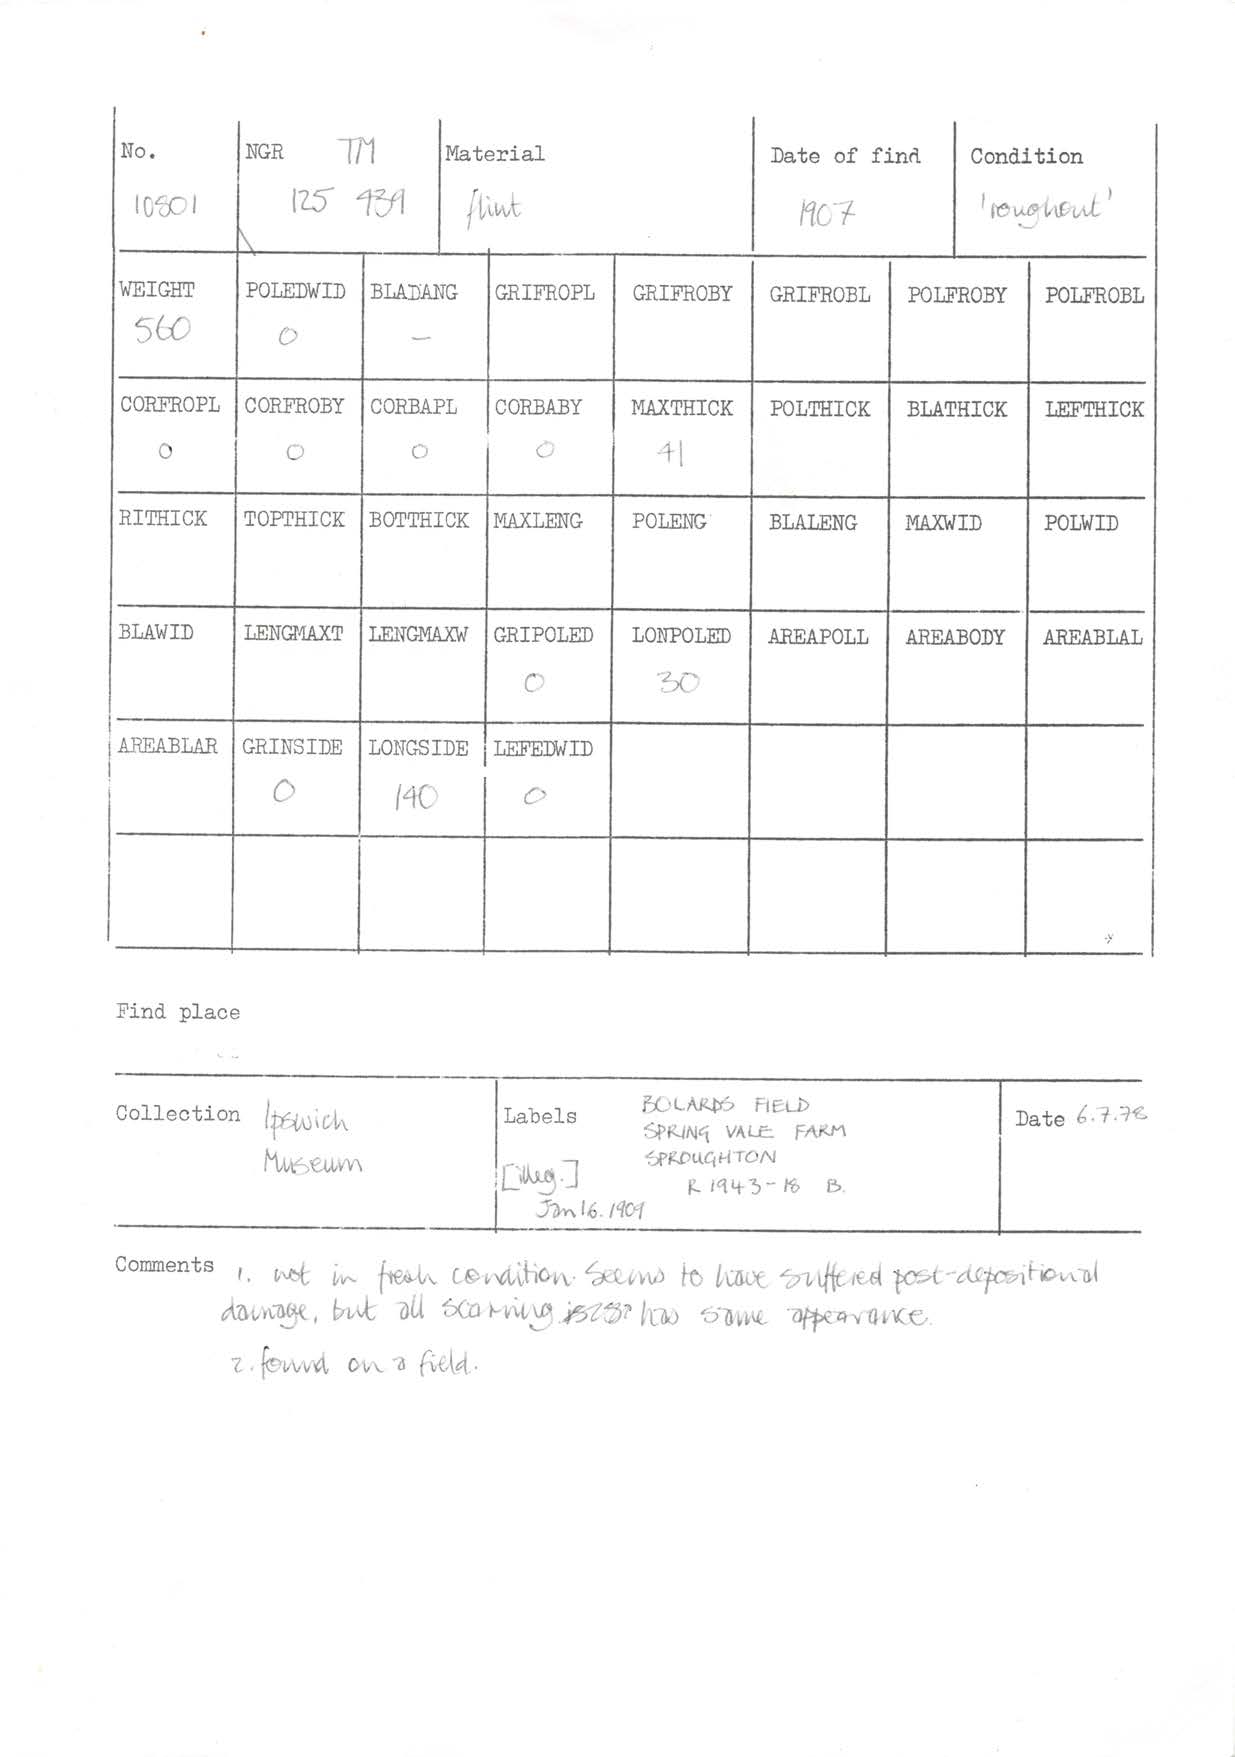 No. NGR TM Material Date of find Condition
10801 125 439 flint 1907 'roughout'
WEIGHT POLEDWID BLADANG GRIFROPL GRIFROBY GRIFROBL POLFROBY POLFROBL
560 0 —
CORFROPL CORFROBY CORBAPL CORBABY MAXTHICK POLTHICK BLATHICK LEFTHICK
0 0 0 0 41
RITHICK TOPTHICK BOTTHICK MAXLENG POLENG BLALENG MAXWID POLWID
BLAWID LENGMAXT LENGMAXW GRIPOLED LONPOLED AREAPOLL AREABODY AREABLAL
0 30
AREABLAR GRINSIDE LONGSIDE LEFEDWID
0 140 0
Find place
Collection Ipswich Museum
Labels BOLARDS FIELD
SPRING VALE FARM
SPROUGHTON
[illeg.] R 1943-18 B.
Jan 16. 1909
Date 6.7.78
Comments 1. not in fresh condition. Seems to have suffered post-depositional
damage, but all scarring has same appearance.
2. found on a field.